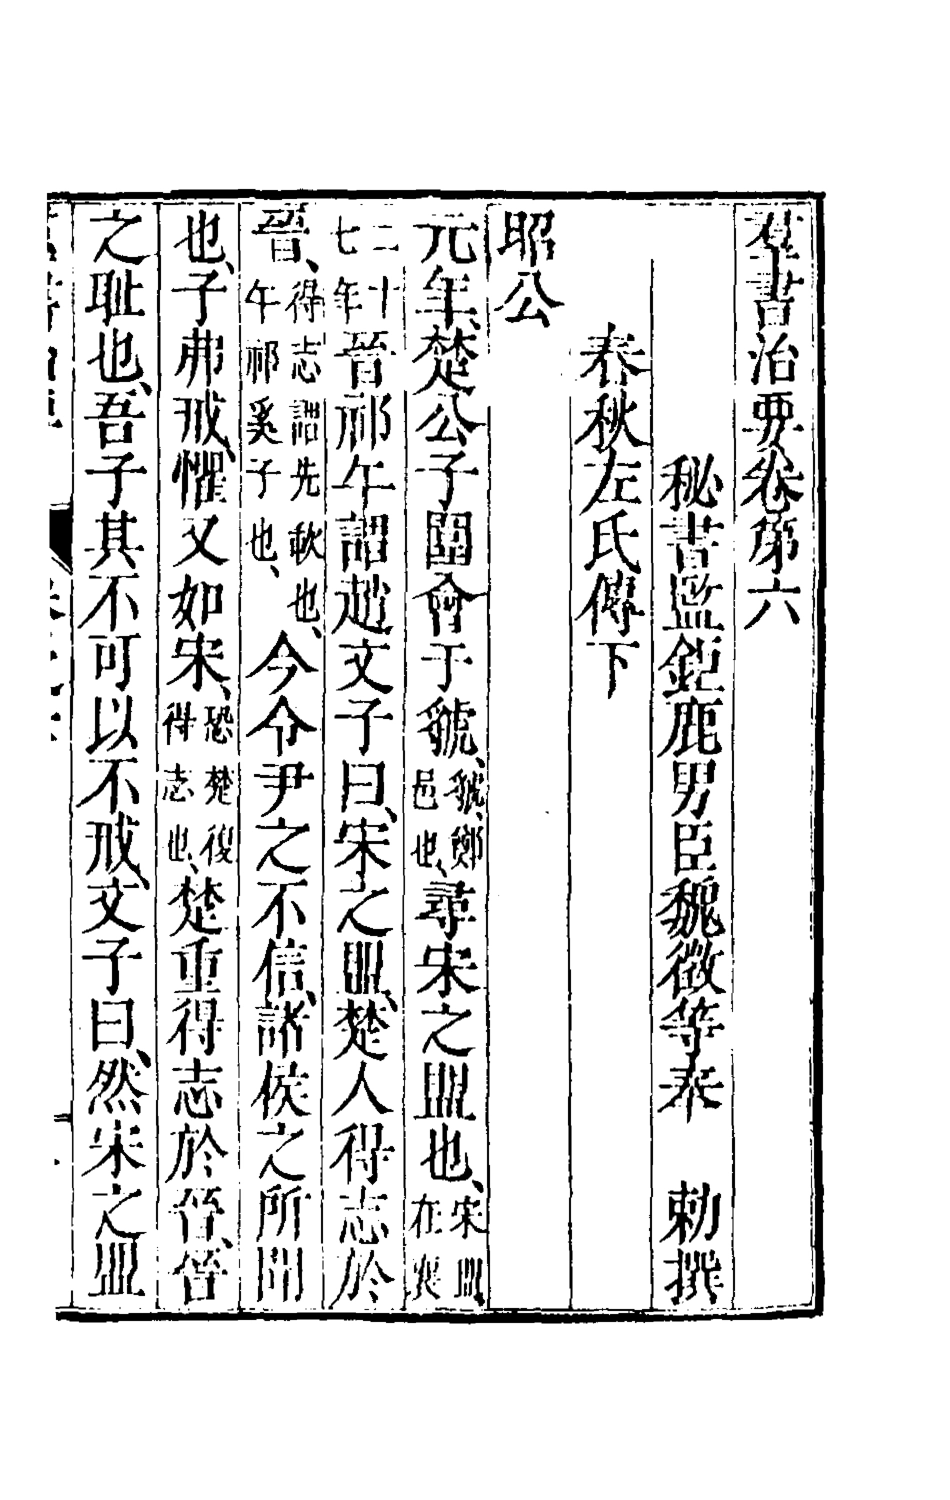 羣書治要卷第六
秘書監鉅鹿男臣魏徵等奉　勅撰
春秋左氏傳下
昭公
元年、楚公子圍會于虢、虢、鄭邑也、尋宋之盟也、宋盟、在襄
二十七年晉祁午謂趙文子曰、宋之盟、楚人得志於
晉、得志謂先歃也、午祁奚子也、今令尹之不信、諸侯之所聞
也、子弗戒、懼又如宋、恐楚復得志也、楚重得志於晉、晉
之耻也、吾子其不可以不戒、文子曰、然宋之盟